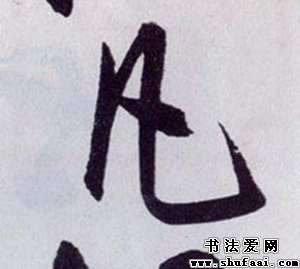 凡
书法爱网
www.shufaai.com